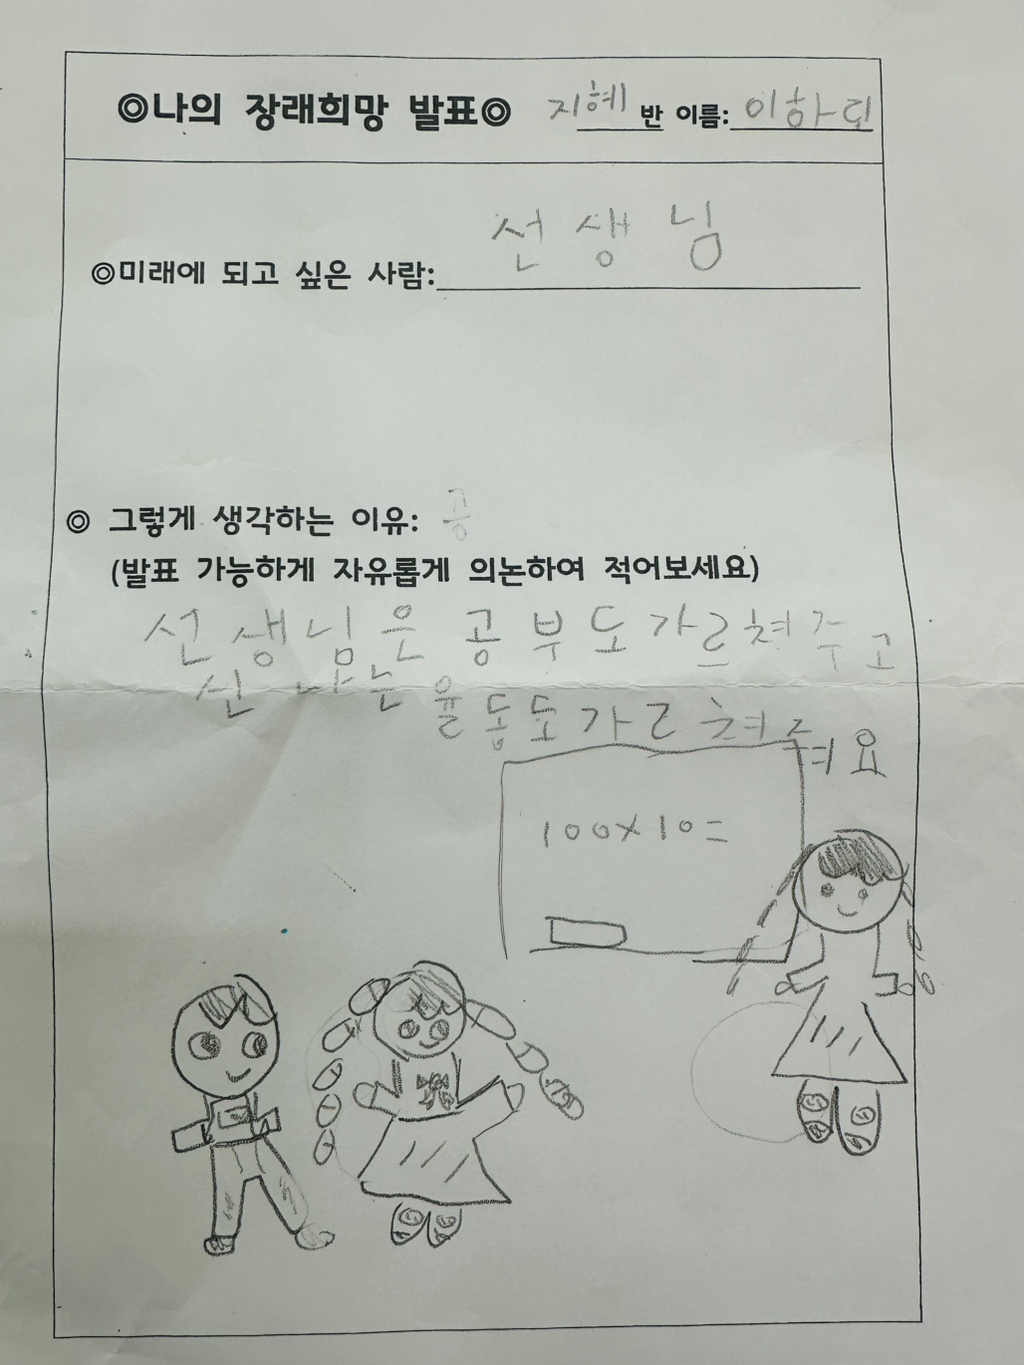 ◎나의 장래희망 발표◎ 지혜 반 이름: 이하
선생님
◎미래에 되고 싶은 사람:
◎ 그렇게 생각하는 이유: 공
(발표 가능하게 자유롭게 의논하여 적어보세요)
선생님은 공부도가르쳐주고
신나는율동도가르쳐줘요
100×10=